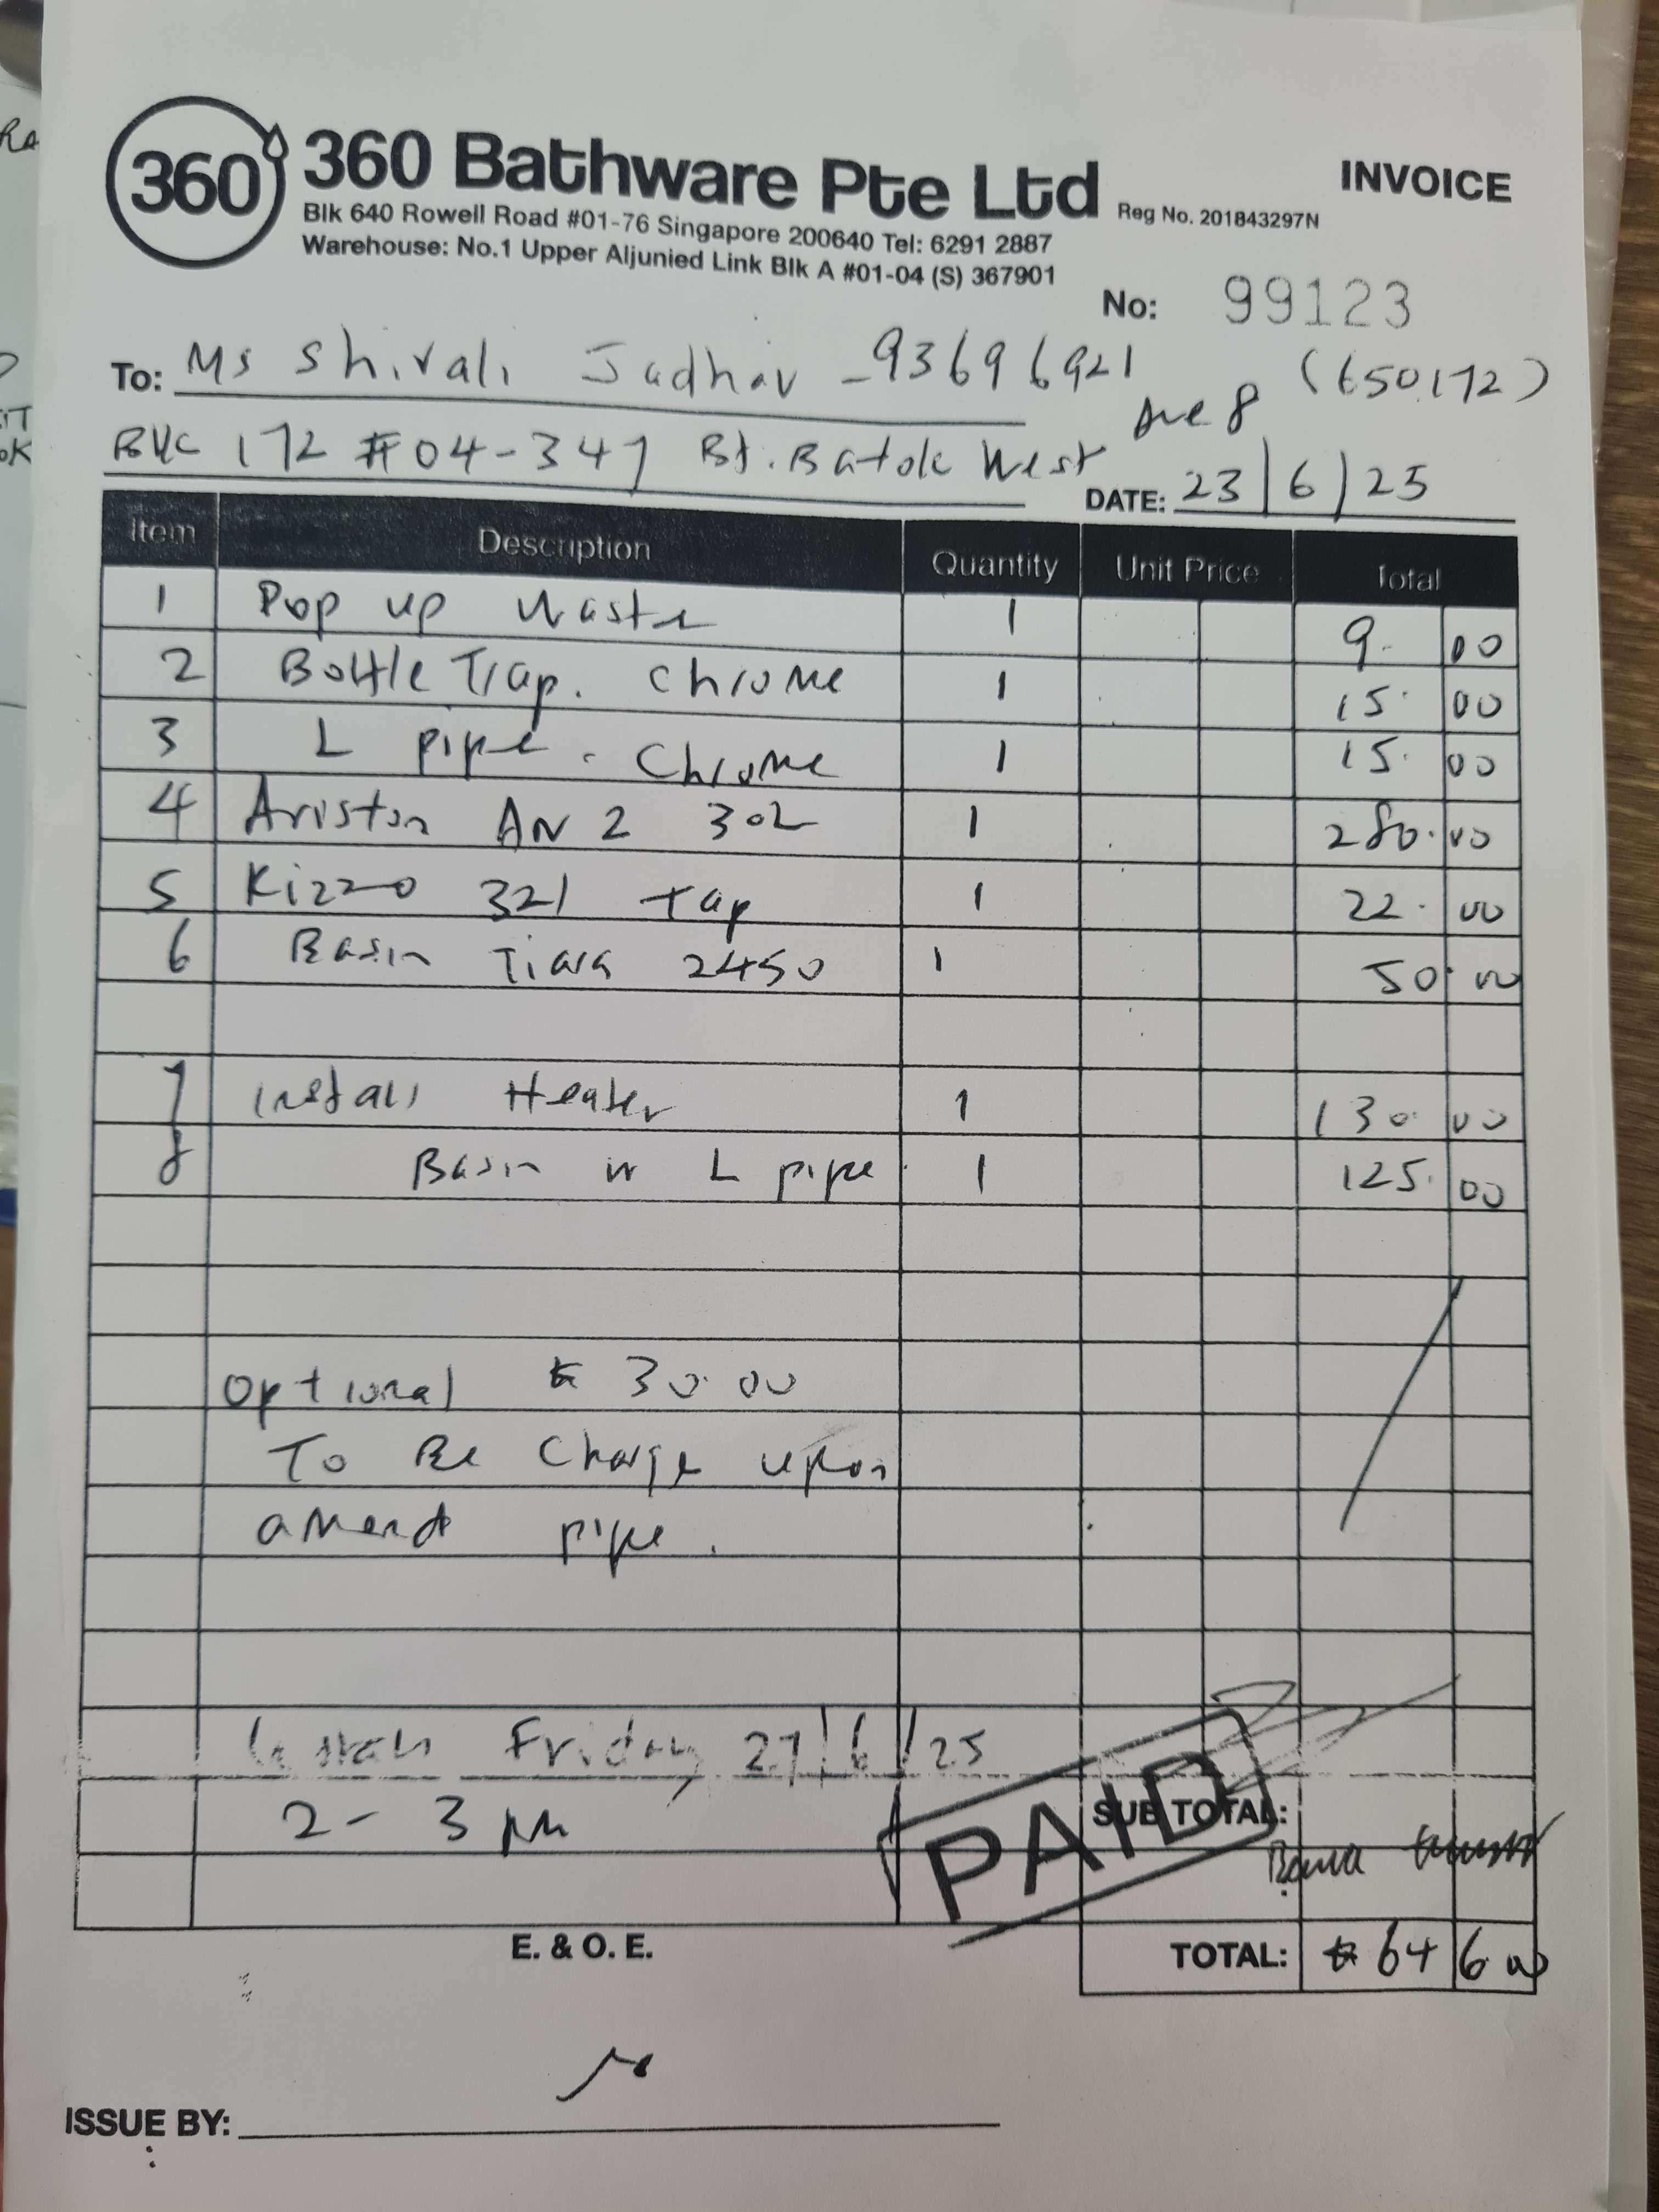 360
360 Bathware Pte Ltd Reg No. 201843297N
INVOICE
Blk 640 Rowell Road #01-76 Singapore 200640 Tel: 6291 2887
Warehouse: No.1 Upper Aljunied Link Blk A #01-04 (S) 367901
No: 99123
To: Ms Shivali Jadhav - 93696921
Blk 172 #04-347 Bt. Batok West Ave 8 (650172)
DATE: 23/6/25
Item Description Quantity Unit Price Total
1 Pop up Waste 1 9.00
2 Bottle Trap. Chrome 1 15.00
3 L pipe. Chrome 1 15.00
4 Ariston AN2 30L 1 280.00
5 Kizzo 321 tap 1 22.00
6 Basin Tiara 2450 1 50.00
7 install Heater 1 130.00
8 Basin w L pipe 1 125.00
Optional $ 30.00
To Be Charge upon
amend pipe.
Friday 27/6/25
2 - 3 pm
PAID
SUB TOTAL:
E. & O. E.
TOTAL: $646.00
ISSUE BY: